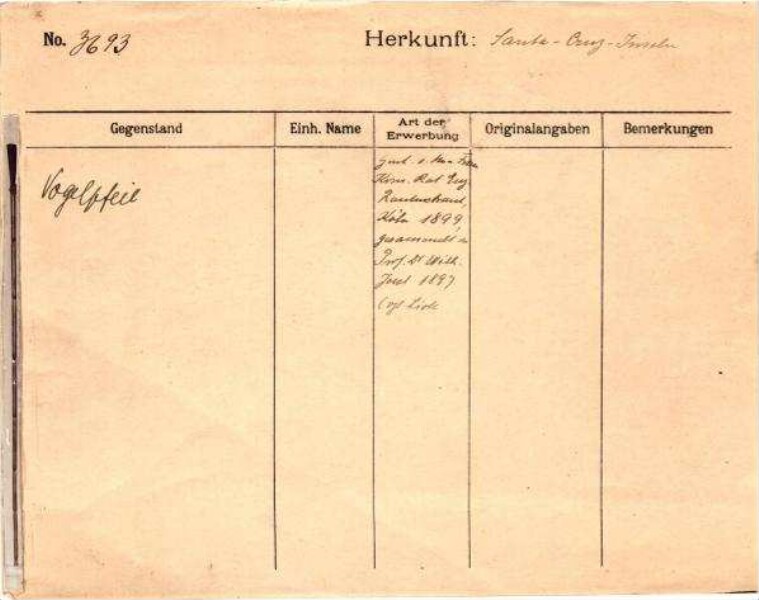 No. 3693 Herkunft: Santa-Cruz-Inseln
Gegenstand Einh. Name Art der Erwerbung Originalangaben Bemerkungen
Vogelpfeil
Gesch. v.
Kom. Rat Eug.
Rautenstrauch,
Köln 1899,
gesammelt v.
Prof. Dr Wilh.
Joest 1897
(vgl Liste